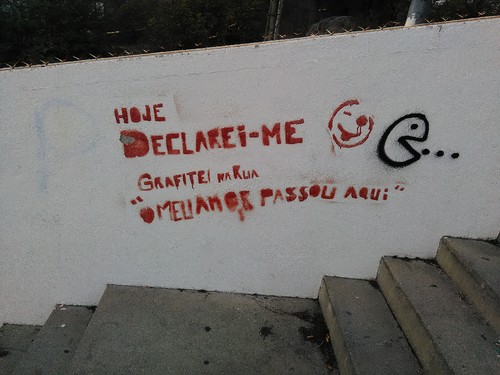 HOJE
DECLAREI-ME
GRAFITEI NA RUA
"O MEU AMOR PASSOU AQUI"